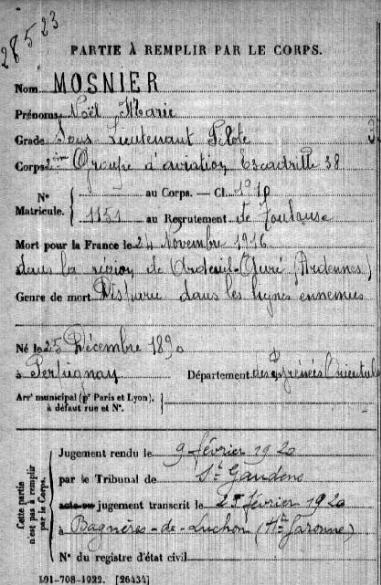 28523
PARTIE À REMPLIR PAR LE CORPS.
Nom MOSNIER
Prénoms Noël Marie
Grade Sous Lieutenant Pilote
Corps 2ème Groupe d'aviation Escadrille 38
N° Matricule. { au Corps. — Cl. 1910
1151 au Recrutement de Toulouse
Mort pour la France le 24 Novembre 1916
dans la région de Ardeuil-
(Ardennes)
Genre de mort Disparu dans les lignes ennemies
Né le 25 Décembre 1890
à Perpignan Département des Pyrénées Orientales
Arrt municipal (pr Paris et Lyon),
à défaut rue et N°.
Cette partie n'est pas à remplir par le Corps.
Jugement rendu le 9 février 1920
par le Tribunal de St Gaudens
acte ou jugement transcrit le 25 février 1920
à Bagnères-de-Luchon (Hte Garonne)
N° du registre d'état civil
101-708-1922. [26434]